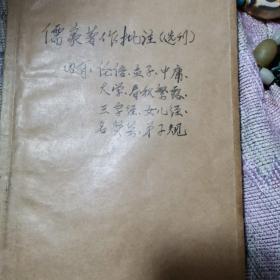 儒家著作批注(选刊)
内有、论语、孟子、中庸
大学、春秋繁露、
三字经、女儿经、
名贤集、弟子规